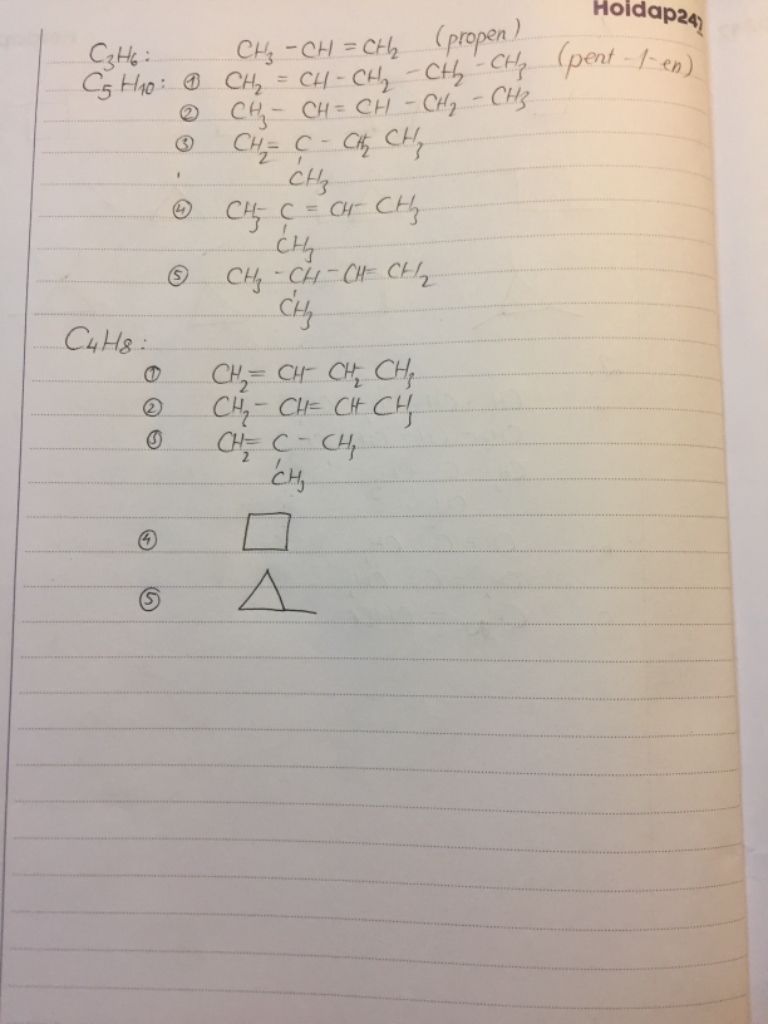 Hoidap247
C₃H₆: CH₃ - CH = CH₂ (propen)
C₅H₁₀: ① CH₂ = CH - CH₂ - CH₂ - CH₃ (pent-1-en)
② CH₃ - CH = CH - CH₂ - CH₃
③ CH₂ = C - CH₂ CH₃
CH₃
④ CH₃ C = CH - CH₃
CH₃
⑤ CH₃ - CH - CH = CH₂
CH₃
C₄H₈:
① CH₂ = CH - CH₂ CH₃
② CH₂ - CH = CH CH₃
③ CH₂ = C - CH₃
CH₃
④
⑤